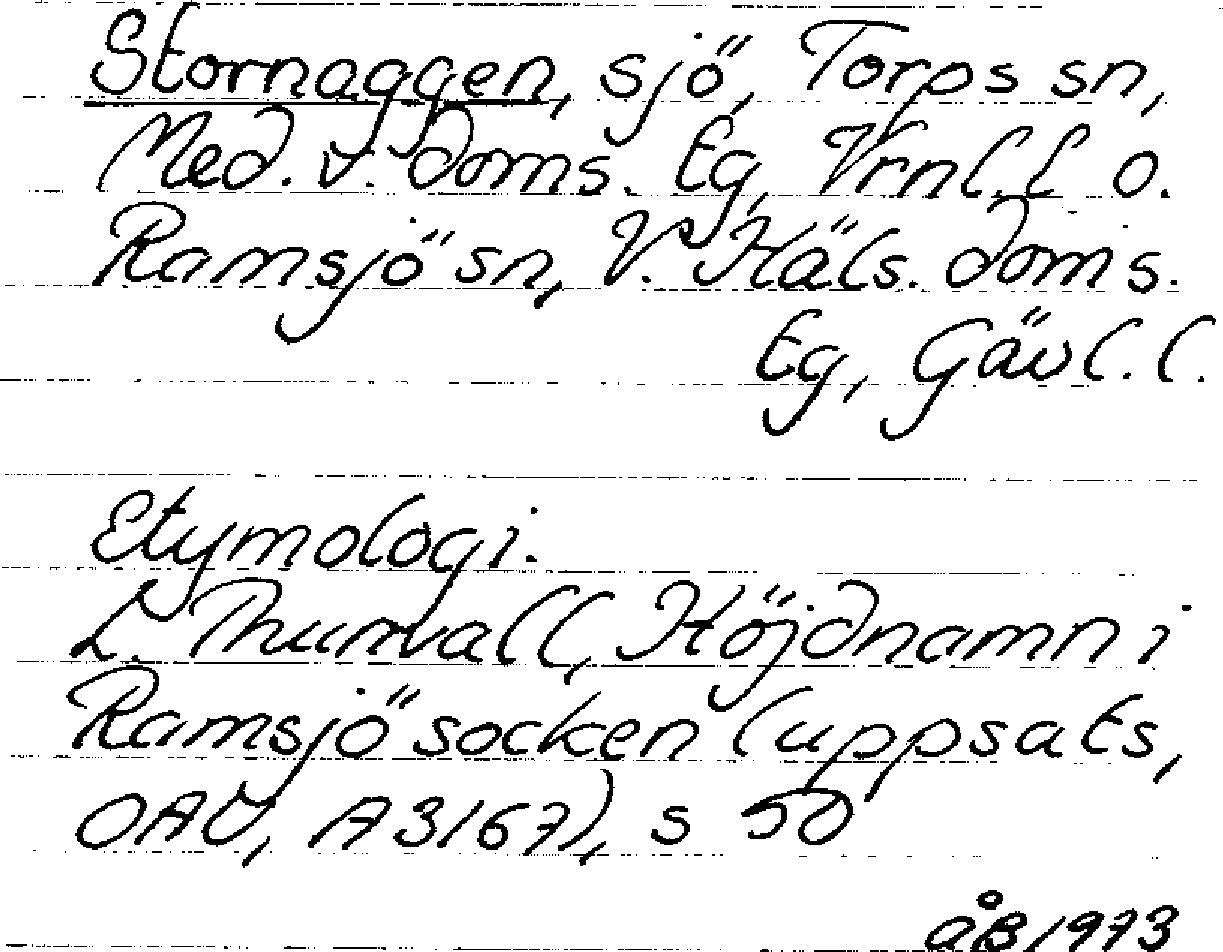 Stornaggen, sjö, Torps sn,
Med. v. doms. Eg, Vrnl. l o.
Ramsjö sn, V. Häls. doms.
Eg, Gävl. l.
Etymologi.
L. Thunvall, Höjdnamn i
Ramsjö socken (uppsats,
OAU, A 3167), s 50
ÅB 1973